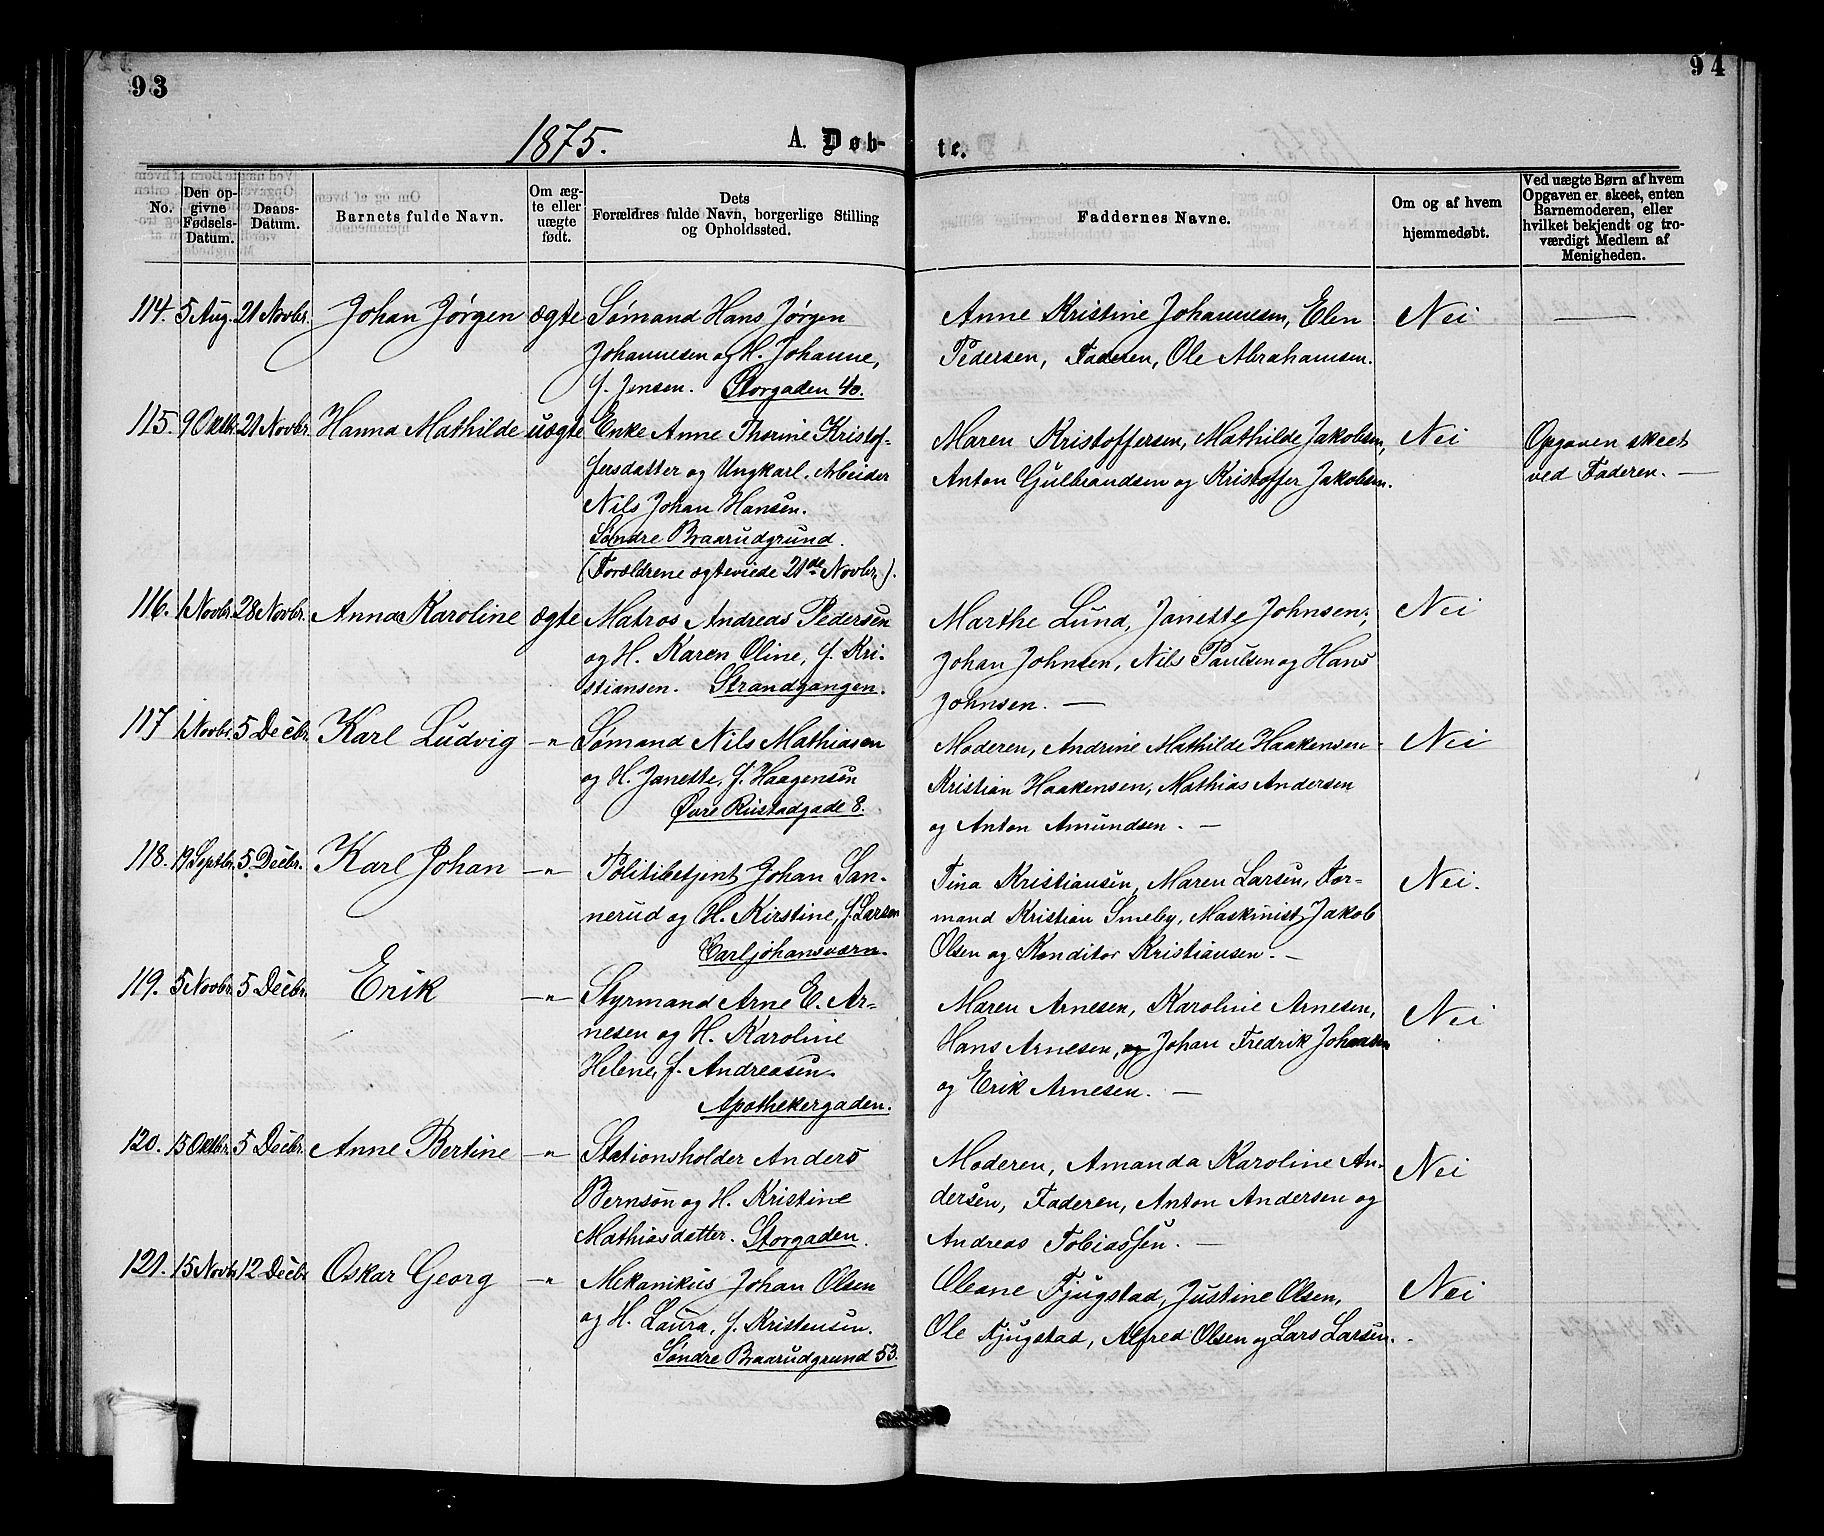 93
94
1875. A. Døb- te.
No.
Den op-
givne
Fødsels-
Datum.
Daabs-
Datum.
Barnets fulde Navn.
Om æg-
te eller
uægte
født.
Dets
Forældres fulde Navn, borgerlige Stilling
og Opholdssted.
Faddernes Navne.
Om og af hvem
hjemmedøbt.
Ved uægte Børn af hvem
Opgaven er skeet, enten
Barnemoderen, eller
hvilket bekjendt og tro-
værdigt Medlem af
Menigheden.
114. 5 Aug. 21 Novbr. Johan Jørgen ægte Sømand Hans Jørgen
Johannesen og H. Johanne,
f. Jensen. Storgaden 40.
Anne Kristine Johannesen, Elen
Pedersen, Faderen, Ole Abrahamsen.
Nei —
115. 9 Oktbr. 21 Novbr. Hanna Mathilde uægte Enke Anne Thorine Kristof-
fersdatter og Ungkarl. Arbeider
Nils Johan Hansen.
Søndre Braarudgrund.
(Forældrene ægteviede 21de Novbr.).
Maren Kristoffersen, Mathilde Jakobsen,
Anton Gulbrandsen og Kristoffer Jakobsen.
Nei
Opgaven skeet
ved Faderen. —
116. 1 Novbr. 28 Novbr. Anna Karoline ægte Matros Andreas Pedersen
og H. Karen Oline, f. Kri-
stiansen. Strandgangen.
Marthe Lund, Janette Johnsen,
Johan Johnsen, Nils Paulsen og Hans
Johnsen. —
Nei
117. 1 Novbr. 5 Decbr. Karl Ludvig -"- Sømand Nils Mathiasen
og H. Janette, f. Haagensen
Øvre Rustadgade 8.
Moderen, Andrine Mathilde Haakensen
Kristian Haakensen, Mathias Andersen
og Anton Amundsen. —
Nei
118. 19 Septbr. 5 Decbr. Karl Johan -"- Politibetjent Johan San-
nerud og H. Kirstine, f. Larsen
Carljohansværn.
Tina Kristiansen, Maren Larsen, For-
mand Kristian Smeby, Maskinist Jakob
Olsen og Konditor Kristiansen. —
Nei.
119. 5 Novbr. 5 Decbr. Erik -"- Styrmand Arne E. Ar-
nesen og H. Karoline
Helene, f. Andreasen.
Apothekergaden.
Maren Arnesen, Karoline Arnesen,
Hans Arnesen, og Johan Fredrik Johansen
og Erik Arnesen. —
Nei
120. 15 Oktbr. 5 Decbr. Anne Bertine -"- Stationsholder Anders
Bernson og H. Kristine
Mathiasdatter. Storgaden.
Moderen, Amanda Karoline An-
dersen, Faderen, Anton Andersen og
Andreas Tobiassen. —
Nei
121. 15 Novbr. 12 Decbr. Oskar Georg -"- Mekanikus Johan Olsen
og H. Laura, f. Kristensen.
Søndre Braarudgrund 53.
Oleane Fjugstad, Justine Olsen,
Ole Fjugstad, Alfred Olsen og Lars Larsen.
Nei